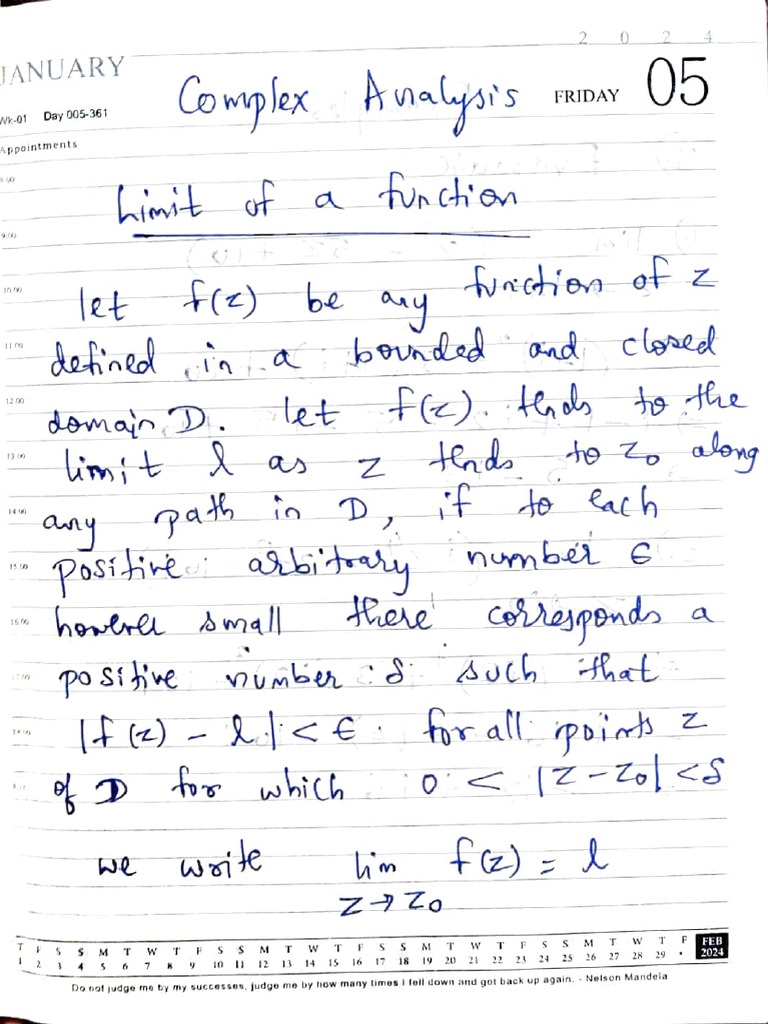 2 0 2 4
JANUARY
Complex Analysis
FRIDAY 05
Wk-01 Day 005-361
Appointments
Limit of a function
9.00
10.00
let f(z) be any function of z
11.00
defined in a bounded and closed
12.00
domain D. let f(z) tends to the
13.00
limit l as z tends to z₀ along
14.00
any path in D, if to each
15.00
positive arbitrary number ϵ
16.00
however small there corresponds a
positive number δ such that
|f(z) - l| < ϵ for all points z
of D for which 0 < |z - z₀| < δ
we write lim f(z) = l
z → z₀
T F S S M T W T F S S M T W T F S S M T W T F S S M T W T F
1 2 3 4 5 6 7 8 9 10 11 12 13 14 15 16 17 18 19 20 21 22 23 24 25 26 27 28 29 •
FEB
2024
Do not judge me by my successes, judge me by how many times I fell down and got back up again. - Nelson Mandela